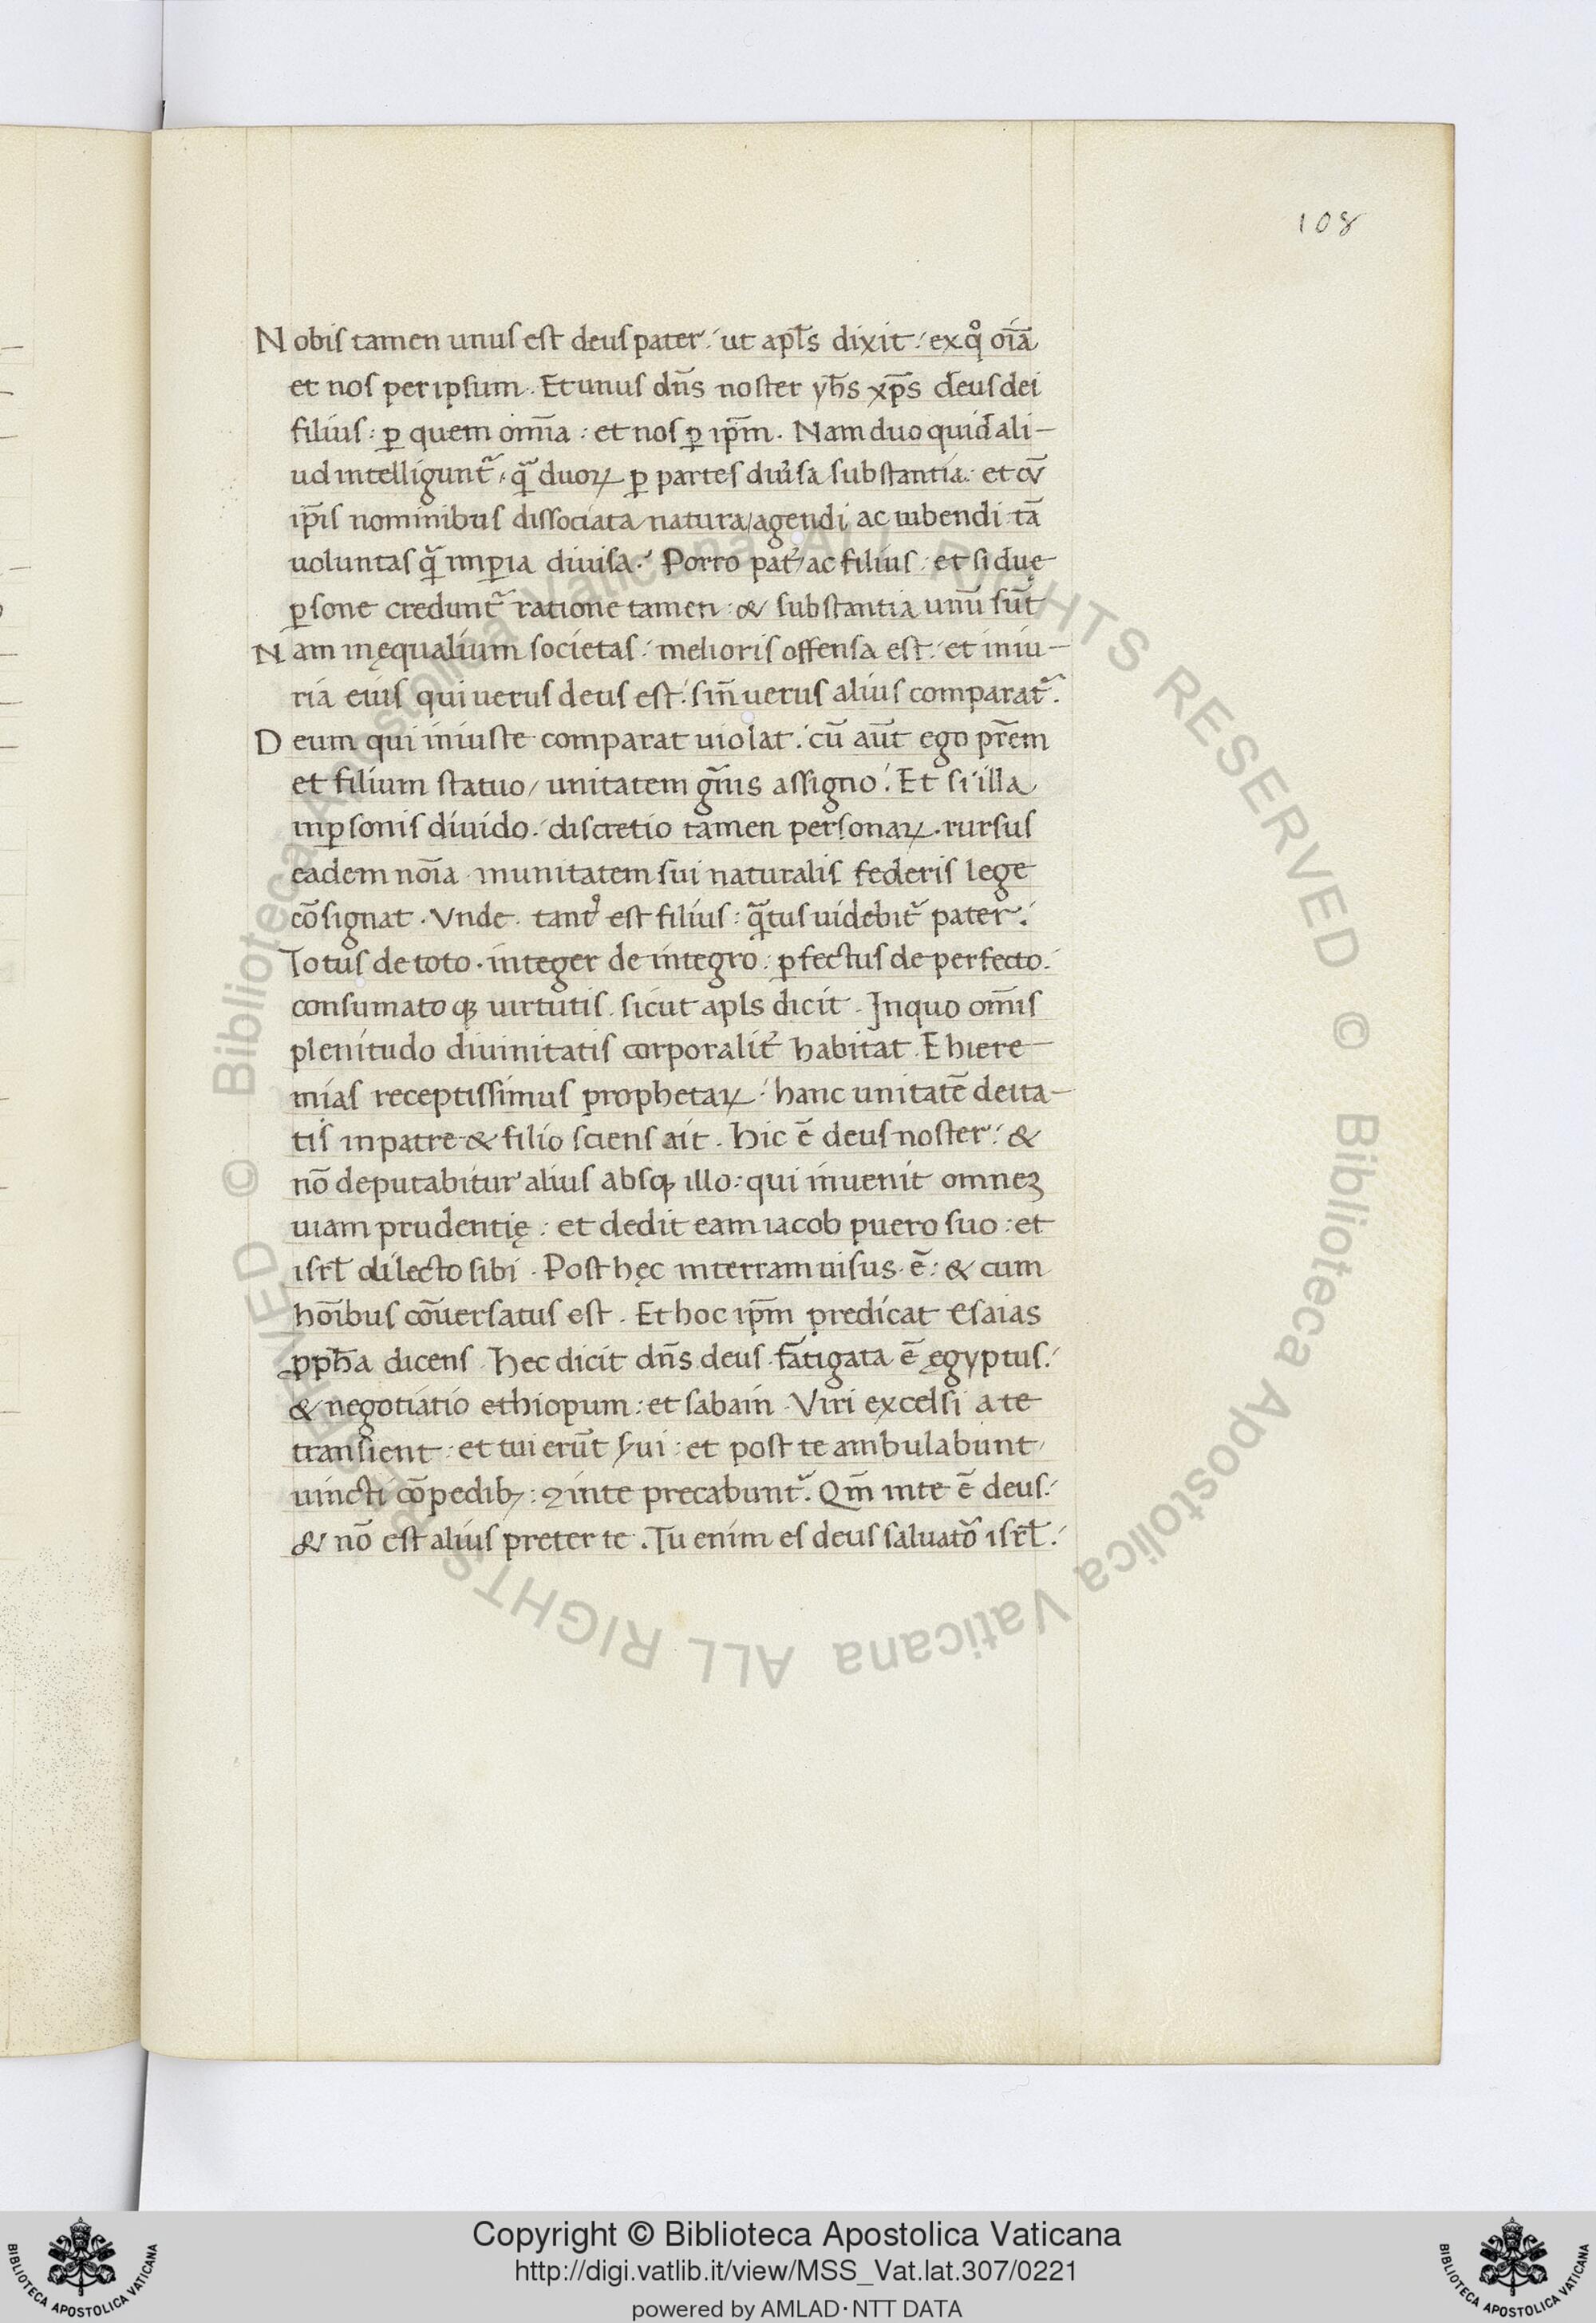 108
Nobis tamen unus est deus pater: ut apl̄s dixit: ex qͦ oīa
et nos per ipsum. Et unus dn̄s noster yh̄s xp̄s deus dei
filius: ꝑ quem om̄ia: et nos ꝑ ip̄m. Nam duo quid ali-
ud intelligunt᷑: q̄ duoꝝ ꝑ partes diu̓sa substantia: et cū
ip̄is nominibus dissociata natura/agendi ac iubendi tā
uoluntas q̄ imꝑia diuisa: Porro pat̓ ac filius: et si duę
ꝑsone credunt᷑ ratione tamen: & substantia unū sūt
Nam inęqualium societas: melioris offensa est: et iniu-
ria eius qui uerus deus est: si n̄ uerus alius comparat᷑.
Deum qui iniuste comparat uiolat: cū aūt ego pr̄em
et filium statuo/ unitatem gn̄is assigno: Et si illa
in ꝑsonis diuido: discretio tamen personaꝝ. rursus
eadem noīa in unitatem sui naturalis federis lege
cōsignat. Vnde tantꝰ est filius: q̄tus uidebit᷑ pater:
Totus de toto. integer de integro: ꝑfectus de perfecto:
consumatoqꝫ uirtutis. sicut apls dicit. In quo om̄is
plenitudo diuinitatis corporalit̓ habitat. E hiere-
mias receptissimus prophetaꝝ: hanc unitatē deita-
tis in patre & filio sciens ait. hic ē deus noster: &
nō deputabitur alius absqꝫ illo: qui inuenit omneꝫ
uiam prudentię: et dedit eam iacob puero suo: et
isrł dilecto sibi. Post hęc in terram uisus ē: & cum
hoībus cōuersatus est. Et hoc ip̄m predicat Esaias
ꝓph̄a dicens. hec dicit dn̄s deus fatigata ē ęgyptus:
& negotiatio ethiopum: et sabain. Viri excelsi a te
transient: et tui erūt ẜui: et post te ambulabunt
uincti cōpedibꝫ: ⁊ in te precabunt᷑. Qm̄ in te ē deus:
& nō est alius preter te. Tu enim es deus saluatō isrł:
Copyright © Biblioteca Apostolica Vaticana
http://digi.vatlib.it/view/MSS_Vat.lat.307/0221
powered by AMLAD·NTT DATA
BIBLIOTECA APOSTOLICA VATICANA
BIBLIOTECA APOSTOLICA VATICANA
© Biblioteca Apostolica Vaticana ALL RIGHTS RESERVED © Biblioteca Apostolica Vaticana ALL RIGHTS RESERVED